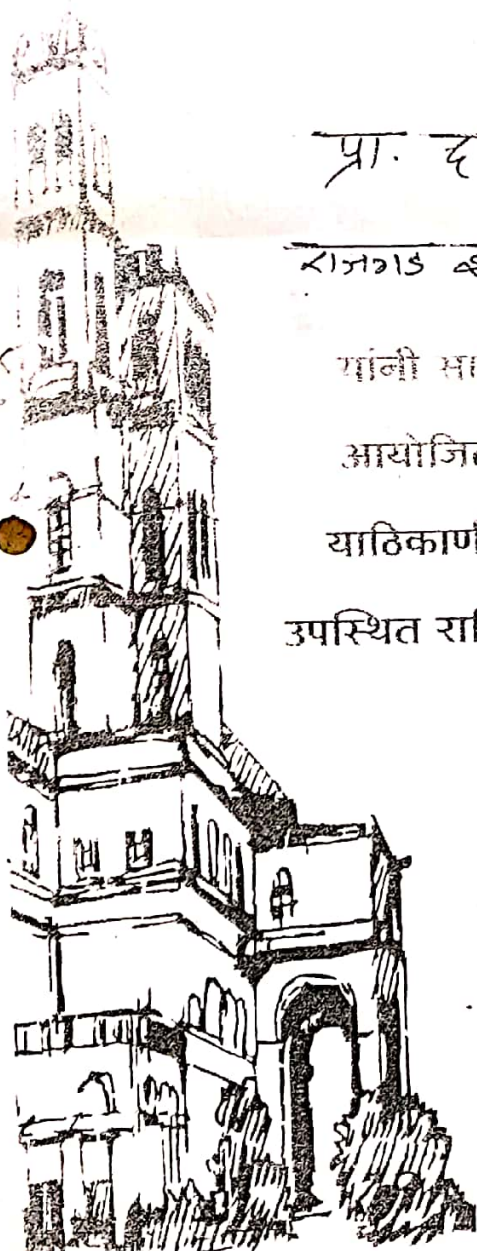 प्रा. द
राजगड
यांनी सा
आयोजित
याठिकाणी
उपस्थित रा